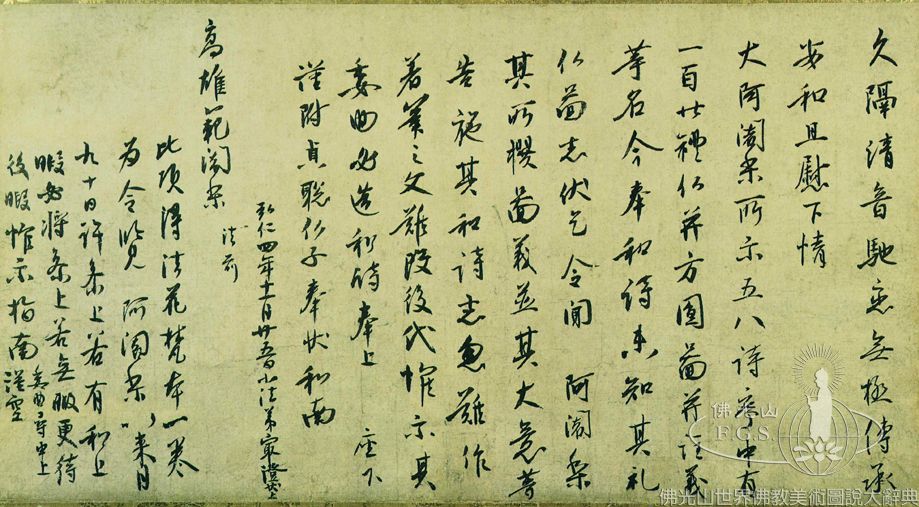 久隔清音馳恋無極傳承
安和且慰下情
大阿闍梨所示五八詩序中有
一百廿禮仏并方圓圖并註義
等名今奉和詩未知其礼
仏圖者伏乞令聞 阿闍梨
其所撰圖義並其大意等
告施其和詩者忽難作
著筆之文難改後代惟示其
委曲必造和詩奉上 座下
謹附貞聡仏子奉状和南
弘仁四年十一月廿五日小法弟最澄状上
高雄範闍梨
法前
此頃得法花梵本一巻
為令覧 阿闍梨 以来月
九十日許参上若有和上
暇必将参上若無暇更待
後暇惟示指南 謹空
佛光山
F.G.S.
佛光山世界佛教美術圖說大辭典